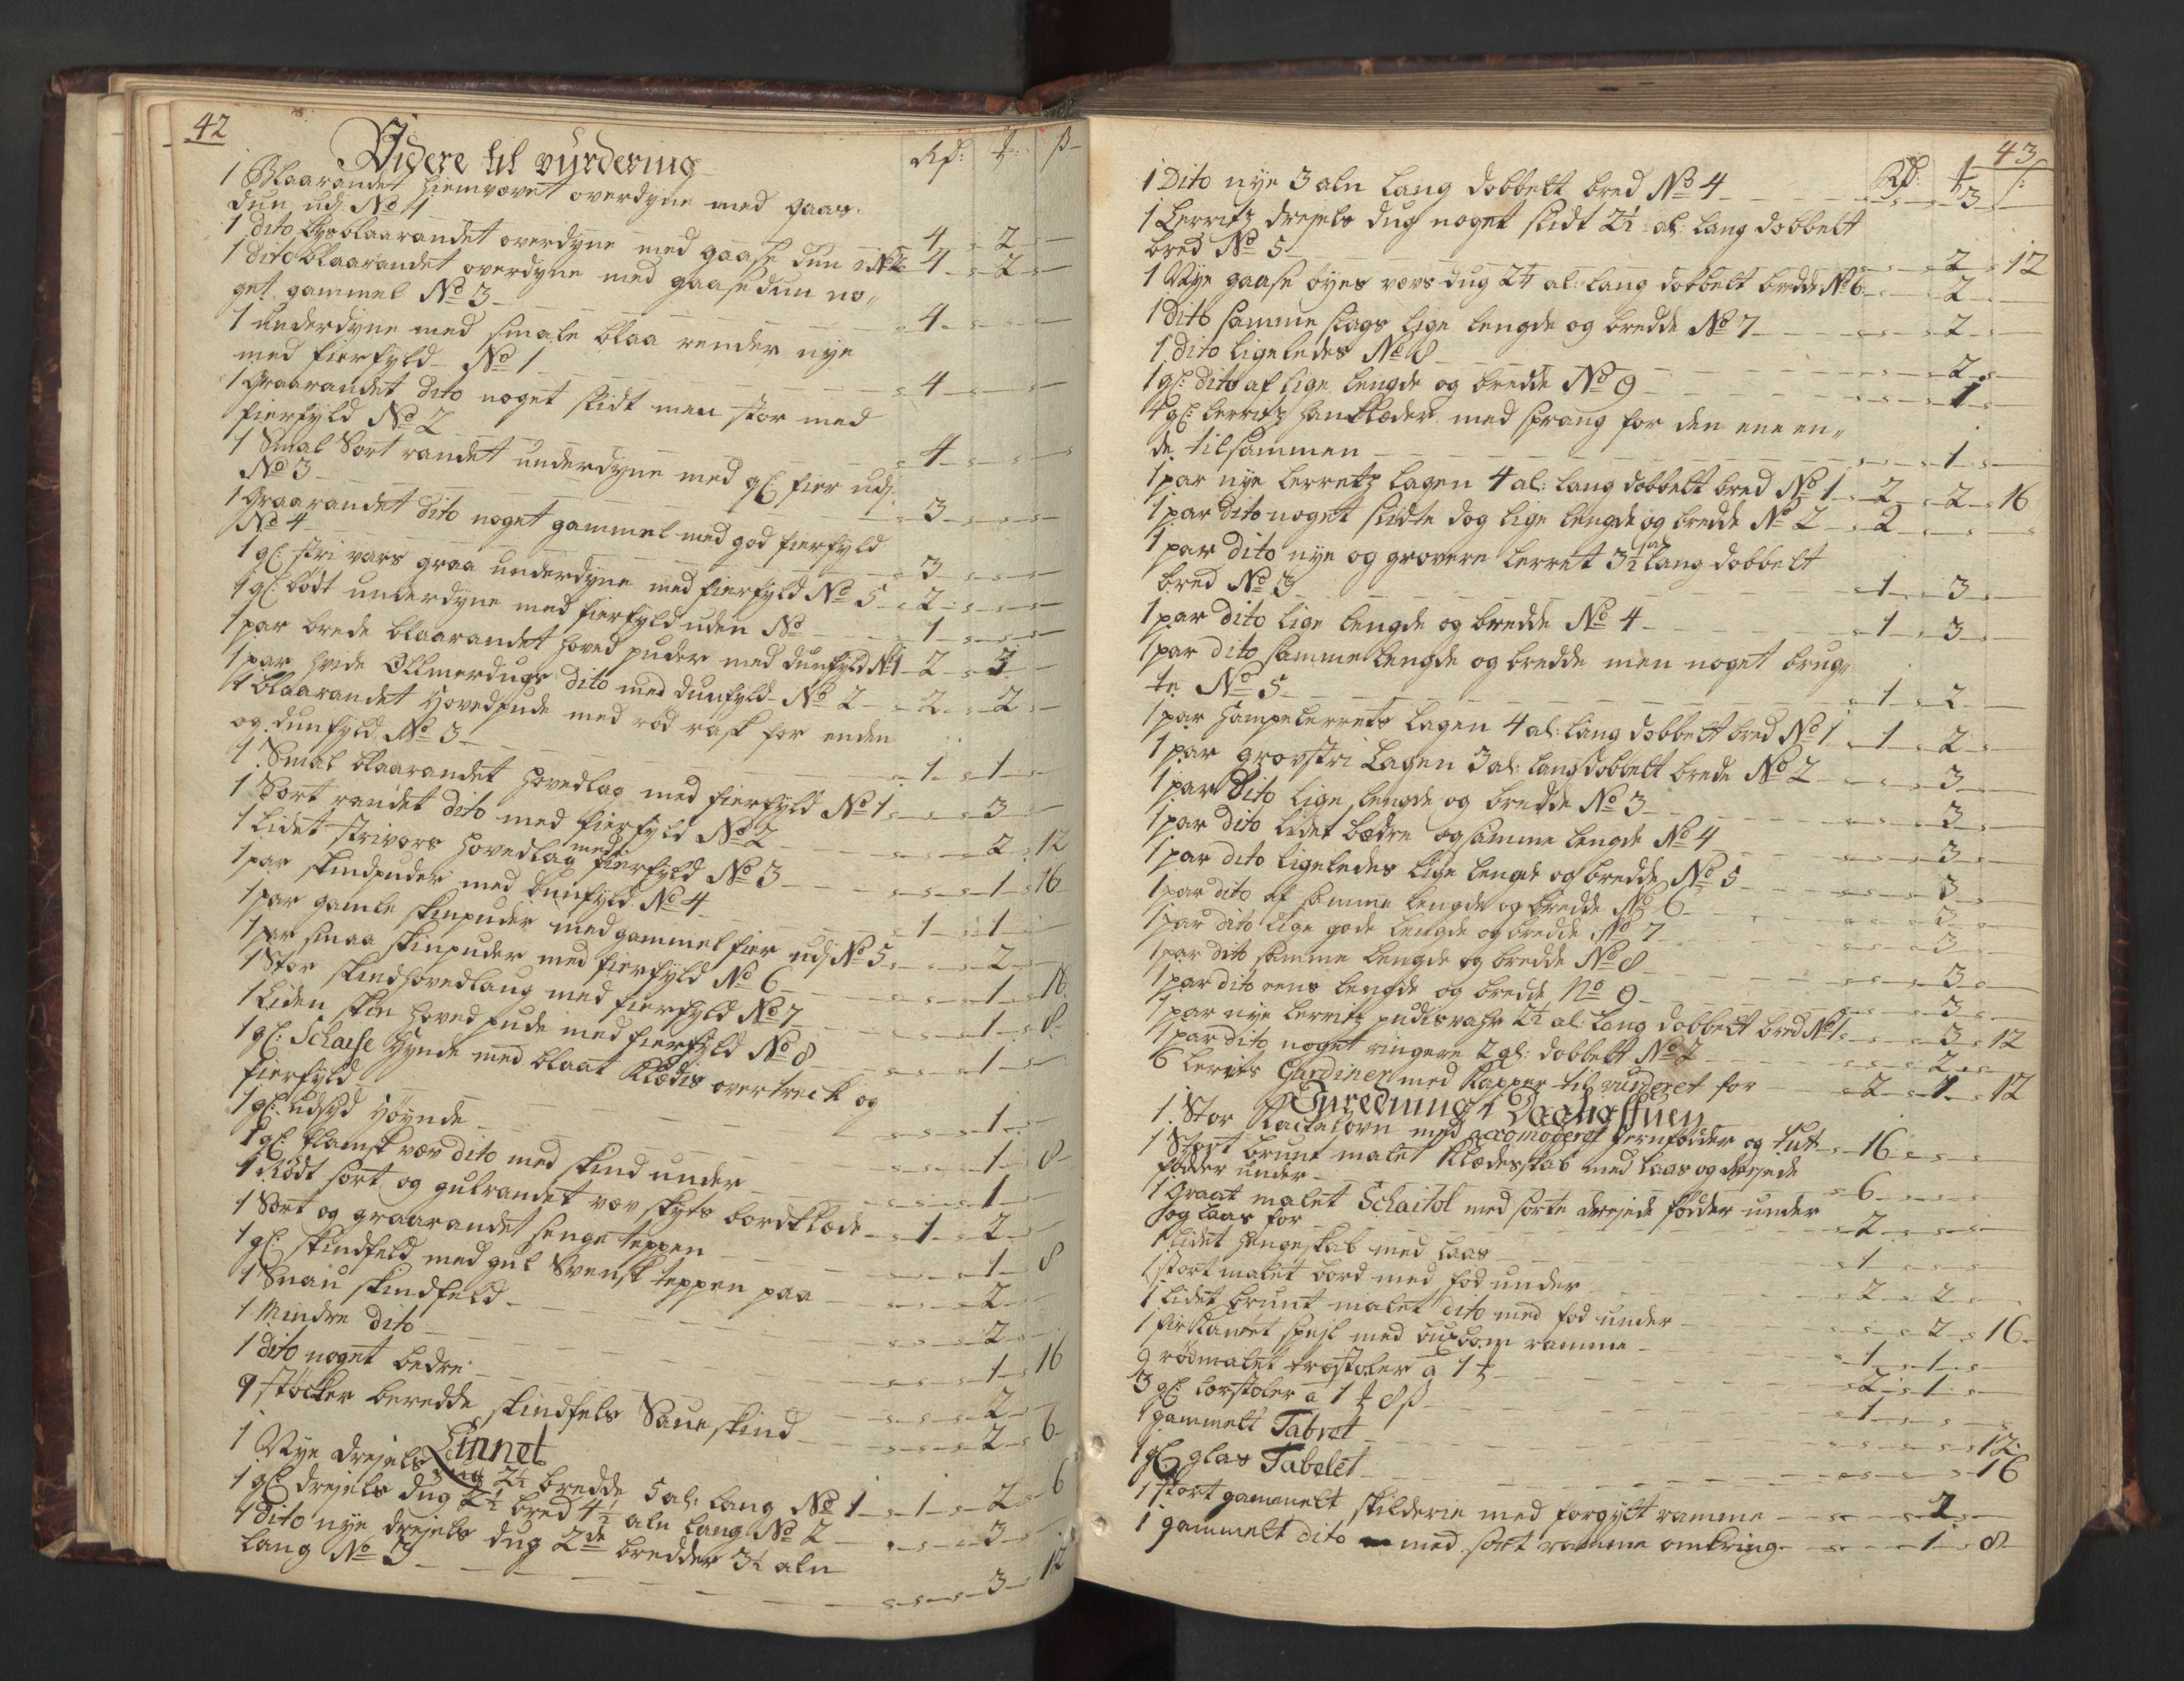 42
Videre til vurdering Rd: ŧ: ß
1 Blaarandet hiemvævet overdyne med gaas-
dun udj No 1 4 2
1 dito lysblaarandet overdyne med gaase dun i No 2 4 2
1 dito blaarandet overdyne med gaasedun no„
get gammel No 3 4
1 underdyne med smale blaa render nye
med fierfyld No 1 4
1 Graarandet dito noget slidt men stor med
fierfyld No 2 4
1 Smal Sort randet underdyne med gl: fier udj
No 3 3
1 Graarandet dito noget gammel med god fierfyld
No 4 3
1 gl: stri vars graa underdyne med fierfyld No 5 2
1 gl: bødt underdyne med fierfyld uden No 1
1 par brede blaarandet hoved puder med dunfyld No 1 2 3
1 par hvide Ollmerdugs dito med dunfyld No 2 2 2
1 blaarandet Hovedpude med rød rask for enden
og dunfyld No 3 1 1
1 Smal blaarandet hovedlag med fierfyld No 1 3
1 Sort randet dito med fierfyld No 2 2 12
1 Lidet strivars hovedlag med fierfyld No 3 1 16
1 par skindpuder med dunfyld No 4 1 1
1 par gamle skinpuder med gammel fier udj No 5 2
1 par smaa skinpuder med fierfyld No 6 1 16
1 Stor skindhovedlaug med fierfyld No 7 1 8
1 Liden skin hoved pude med fierfyld No 8 1
1 gl: Schaese Hynde med blaat Klædis overtreck og
fierfyld 1
1 gl: udsyd Høynde 1 8
1 gl: flamsk vær dito med skind under 1
1 Rødt sort og gulrandet vær skyts bordklæde 1 2
1 Sort og graarandet senge teppen 1 8
1 gl: skindfeld med gul Svensk teppen paa 2
1 Snau skindfeld 2
1 Mindre dito 1 16
1 dito noget bedre 2
9 støcker beredde skindfels Saueskind 2 6
Linnet
1 Nye drejels dug 2½ bredde 5 al: lang No 1 1 2 6
1 gl: drejels dug 2½ bred 4½ aln lang No 2 3
1 dito nye drejels dug 2de bredder 3½ aln
lang No 3 3 12
43
Rd: ŧ ß
1 Dito nye 3 aln lang dobbelt bred No 4 3
1 Lerritz drejels dug noget slidt 2½ al: lang dobbelt
bred No 5 2 12
1 Nye gaase øyes værs dug 2½ al: lang dobbelt bredde No 6 2
1 dito samme slags lige lengde og bredde No 7 2
1 dito ligeledes No 8 2
1 gl: dito af lige lengde og bredde No 9 1
4 gl: lerritz hanklæder med sprang for den ene en„
de tilsammen 1
1 par nye lerretz lagen 4 al: lang dobbelt bred No 1 2 2 16
1 par dito noget slidte dog lige lengde og bredde No 2 2
1 par dito nye og grovere lerret 3½ al lang dobbelt
bred No 3 1 3
1 par dito lige lengde og bredde No 4 1 3
1 par dito samme lengde og bredde men noget brug„
te No 5 1 2
1 par hampelerrets lagen 4 al: lang dobbelt bred No 1 1 2
1 par grovstri Lagen 3 al: lang dobbelt brede No 2 3
1 par Dito lige lengde og bredde No 3 3
1 par dito lidet bædre og samme lengde No 4 3
1 par dito ligeledes lige lengde og bredde No 5 3
1 par dito af samme lengde og bredde No 6 3
1 par dito lige gode lengde og bredde No 7 3
1 par dito samme lengde og bredde No 8 3
1 par dito eens lengde og bredde No 9 3
1 par nye lerritz pudisvahr 2½ al: lang dobbelt bred No 1 3 12
1 par dito noget ringere 2 al: dobbelt No 2 2
6 lerrits Gardiner med Kapper til vurderet for 2 1 12
Inredning i Daglig stuen
1 Stor Kackelovn med accomoderet jernfødder og 16
1 Stort brunt malet Klædeskab med laas og drejede
fødder under 6
1 Graat malet Schaitol med sorte drejede fødder under
og laas for 2
1 lidet hengeskab med laas 1
1 stort malet bord med fod under 2 2
1 lidet brunt malet dito med fod under 2 16
1 firkantet spejl med buxbom ramme 1 1
9 rødmalet træstoler a 1 ŧ 2 1
3 gl: lærstoler a 1 ŧ 8 ß 1
1 gammelt Tabret 12
1 gl: glas Tabelet 16
1 stort gammelt skilderie med forgylt ramme 2
1 gammelt dito med sort ramme omkring 1 8